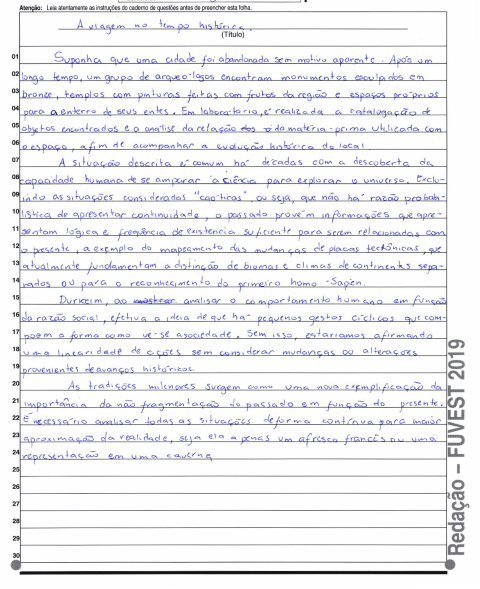 Atenção: Leia atentamente as instruções do caderno de questões antes de preencher esta folha.
A viagem no tempo histórico.
(Título)
01 Suponha que uma cidade foi abandonada sem motivo aparente. Após um
02 longo tempo, um grupo de arqueo-logos encontram monumentos esculpidos em
03 bronze, templos com pinturas feitas com frutos da região e espaços próprios
04 para o enterro de seus entes. Em laboratório, é realizada a catalogação de
05 objetos encontrados e a análise da relação da matéria-prima utilizada com
06 o espaço, afim de acompanhar a evolução histórica do local.
07 A situação descrita é comum há décadas com a descoberta da
08 capacidade humana de se amparar à ciência para explorar o universo. Exclu-
09 indo as situações consideradas "caóticas", ou seja, que não há razão probabi-
10 lística de apresentar continuidade, o passado provém informações que apre-
11 sentam lógica e freqüência de existencia suficiente para serem relacionadas com
12 o presente, a exemplo do mapeamento das mudanças de placas tectônicas, que
13 atualmente fundamentam a distinção de biomas e climas de continentes sepa-
14 rados ou para o reconhecimento do primeiro homo-Sapien.
15 Durkeim, ao analisar o comportamento humano em função
16 da razão social, efetiva a ideia de que há pequenos gestos cíclicos que com-
17 poem a forma como ve-se a sociedade. Sem isso, estaríamos afirmando
18 uma linearidade de ações sem considerar mudanças ou alterações
19 provenientes de avanços históricos.
20 As tradições milenores surgem como uma nova exemplificação da
21 importância da não fragmentação do passado em função do presente.
22 É necessário analisar todas as situações de forma contínua para maior
23 aproximação da realidade, seja ela apenas um afresco francês ou uma
24 representação em uma caverna.
25
26
27
28
29
30
Redação – FUVEST 2019